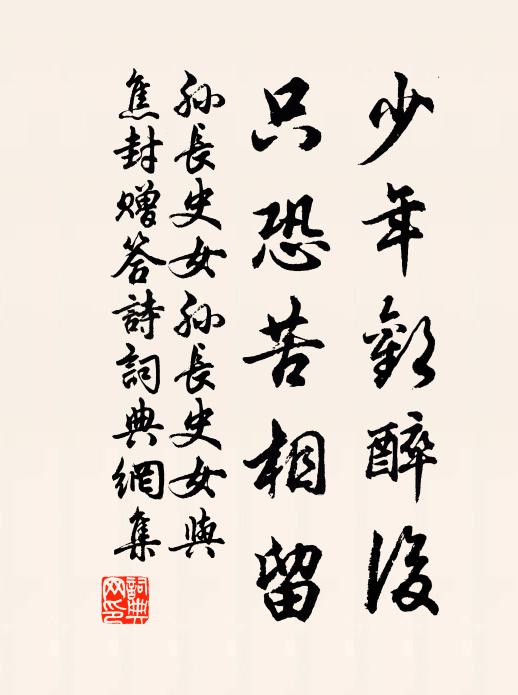 少年歡醉後
只恐苦相留
孫長史女孫長史女與
焦封贈答詩詞典網集
詞典網印